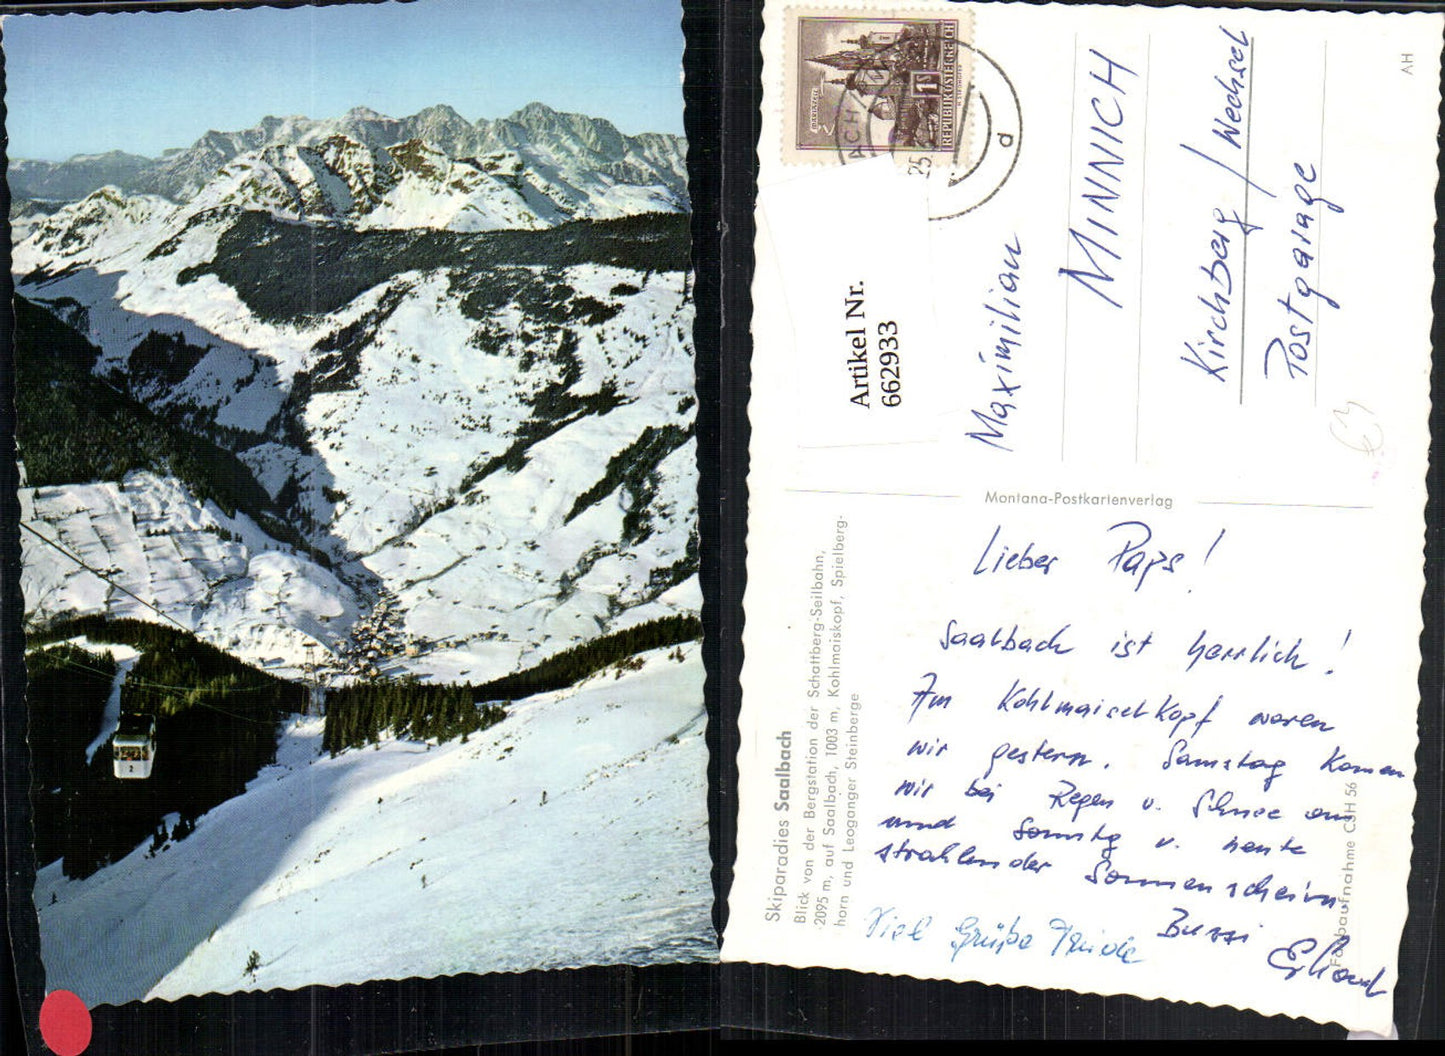 2
REPUBLIK ÖSTERREICH
1S
MARIAZELL
d
Artikel Nr.
662933
Maximilian
MINNICH
Kirchberg / Wechsel
Postgarage
AH
Montana-Postkartenverlag
Skiparadies Saalbach
Blick von der Bergstation der Schattberg-Seilbahn,
2095 m, auf Saalbach, 1003 m, Kohlmaiskopf, Spielberg-
horn und Leoganger Steinberge
Farbaufnahme CSH 56
Lieber Paps!
Saalbach ist herrlich!
Am Kohlmaiselkopf waren
wir gestern. Samstag kamen
wir bei Regen u. Schnee an
und Sonntg u. heute
strahlender Sonnenschein.
Bussi Erhard
Viel Grüße